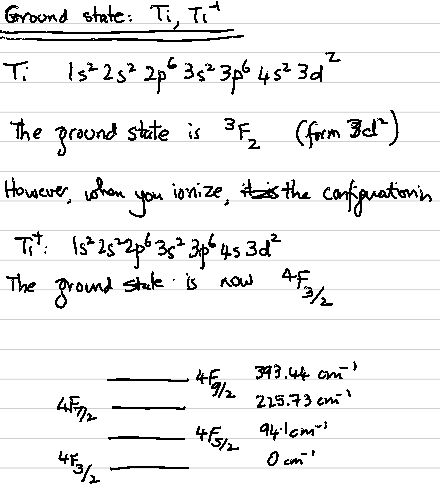 Ground state: Ti, Ti⁺
Ti 1s² 2s² 2p⁶ 3s² 3p⁶ 4s² 3d²
The ground state is ³F₂ (form 3d²)
However, when you ionize, the configuration is
Ti⁺: 1s² 2s² 2p⁶ 3s² 3p⁶ 4s 3d²
The ground state is now ⁴F₃/₂
4F9/2 393.44 cm⁻¹
4F7/2 225.73 cm⁻¹
4F5/2 94.1 cm⁻¹
4F3/2 0 cm⁻¹